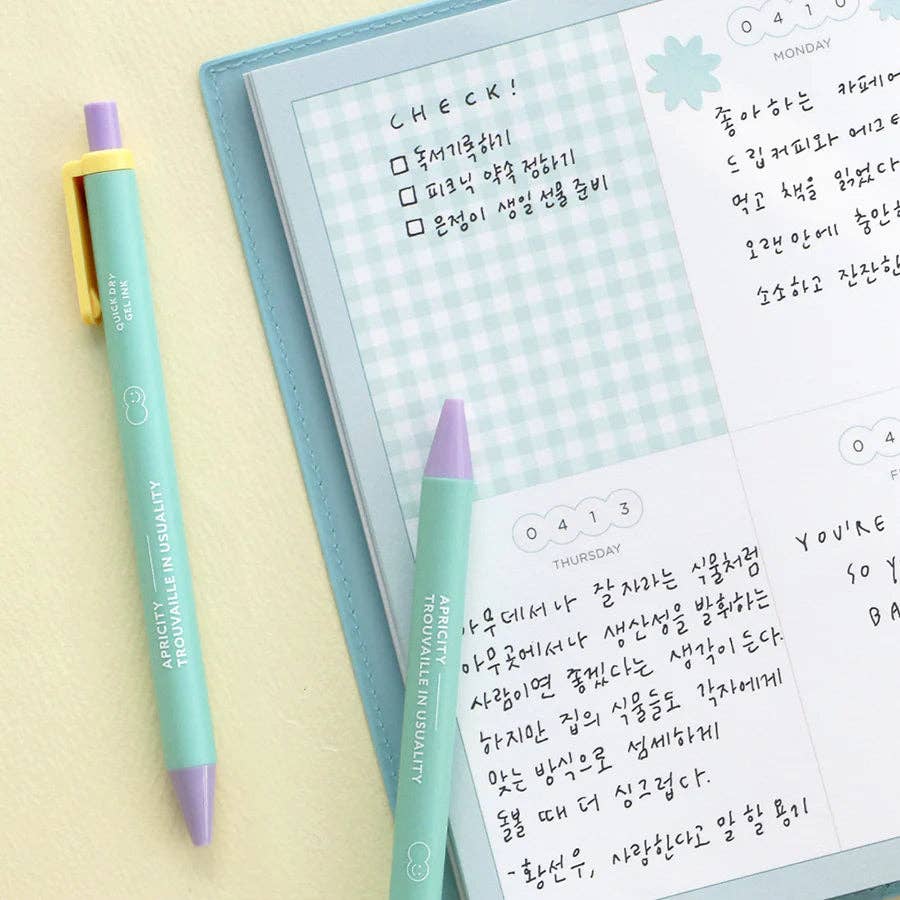 QUICK DRY
GEL INK
APRICITY
TROUVAILLE IN USUALITY
APRICITY
TROUVAILLE IN USUALITY
CHECK!
독서기록하기
피크닉 약속 정하기
은정이 생일 선물 준비
0410
MONDAY
좋아하는 카페에
드립커피와
먹고 책을 읽었다
오랜만에
소소하고 잔잔한
0413
THURSDAY
아무데서나 잘 자라는 식물처럼
아무곳에서나 생산성을 발휘하는
사람이면 좋겠다는 생각이 든다.
하지만 집의 식물들도 각자에게
맞는 방식으로 섬세하게
돌볼 때 더 싱그럽다.
-황선우, 사랑한다고 말할 용기
04
F
YOU'RE
SO Y
BA